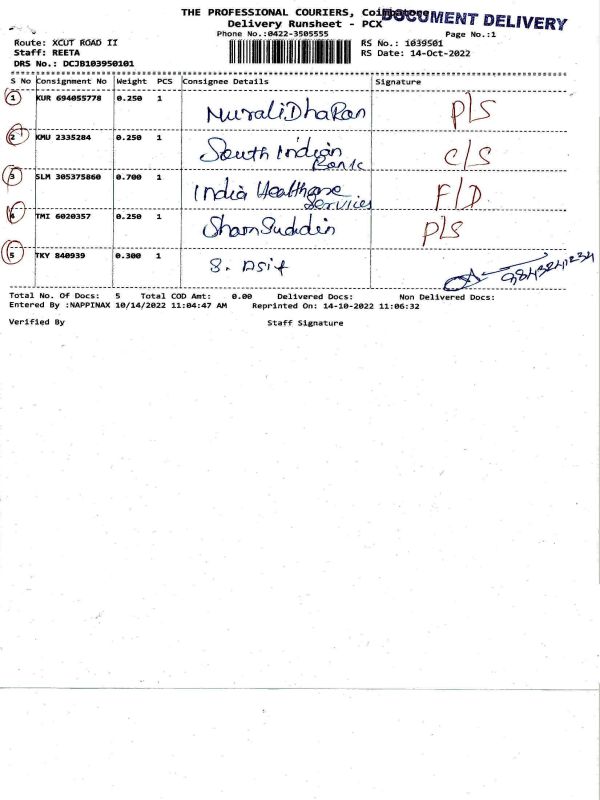 THE PROFESSIONAL COURIERS, Coimbatore
DOCUMENT DELIVERY
Delivery Runsheet - PCX
Phone No.:0422-3505555 Page No.:1
Route: XCUT ROAD II RS No.: 1039501
Staff: REETA RS Date: 14-Oct-2022
DRS No.: DCJB103950101
S No Consignment No Weight PCS Consignee Details Signature
1 KUR 694055778 0.250 1 MuraliDhaRan P/S
2 KMU 2335284 0.250 1 South indian Bank C/S
3 SLM 305375860 0.700 1 India Healthcare Services F/D
4 TMI 6020357 0.250 1 ShamSududin P/S
5 TKY 840939 0.300 1 S. Asif
Total No. Of Docs: 5 Total COD Amt: 0.00 Delivered Docs: Non Delivered Docs:
Entered By :NAPPINAX 10/14/2022 11:04:47 AM Reprinted On: 14-10-2022 11:06:32
Verified By Staff Signature